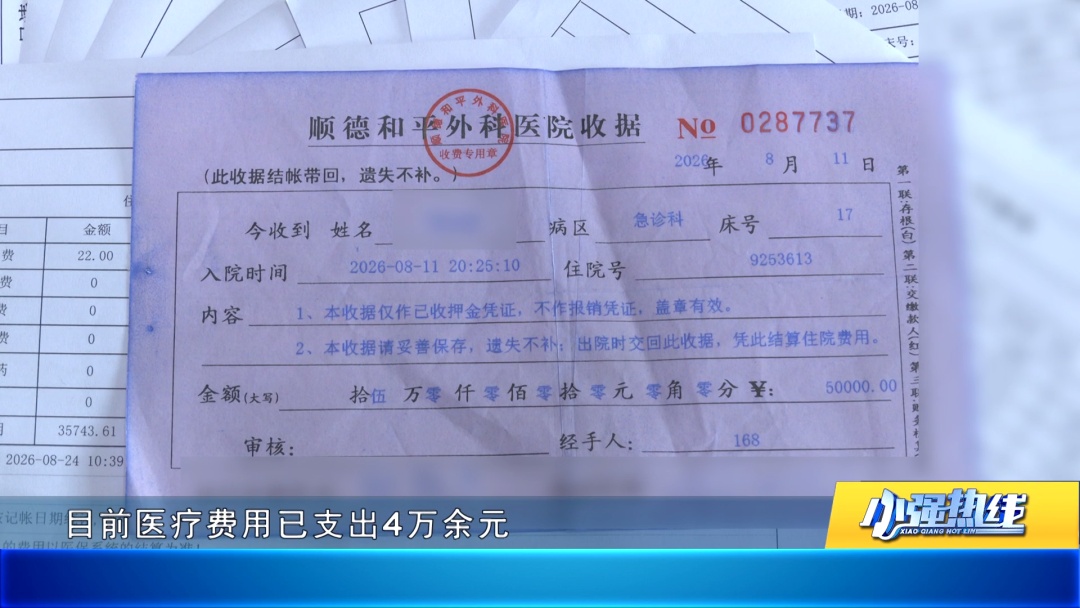 期：2026-08
号：
顺德和平外科医院收据
No 0287737
收费专用章
2026年 8 月 11 日
（此收据结帐带回，遗失不补。）
今收到 姓名 病区 急诊科 床号 17
入院时间 2026-08-11 20:25:10 住院号 9253613
内容 1、本收据仅作已收押金凭证，不作报销凭证，盖章有效。
2、本收据请妥善保存，遗失不补；出院时交回此收据，凭此结算住院费用。
金额(大写) 拾伍 万零 仟零 佰零 拾零 元零 角零 分 ¥： 50000.00
审核： 经手人： 168
第一联:存根(白) 第二联:交缴款人(红) 第三联:财务
金额
费 22.00
费 0
费 0
费 0
药 0
0
35743.61
2026-08-24 10:39
记帐日期
目前医疗费用已支出4万余元
小强热线
XIAO QIANG HOT LIN